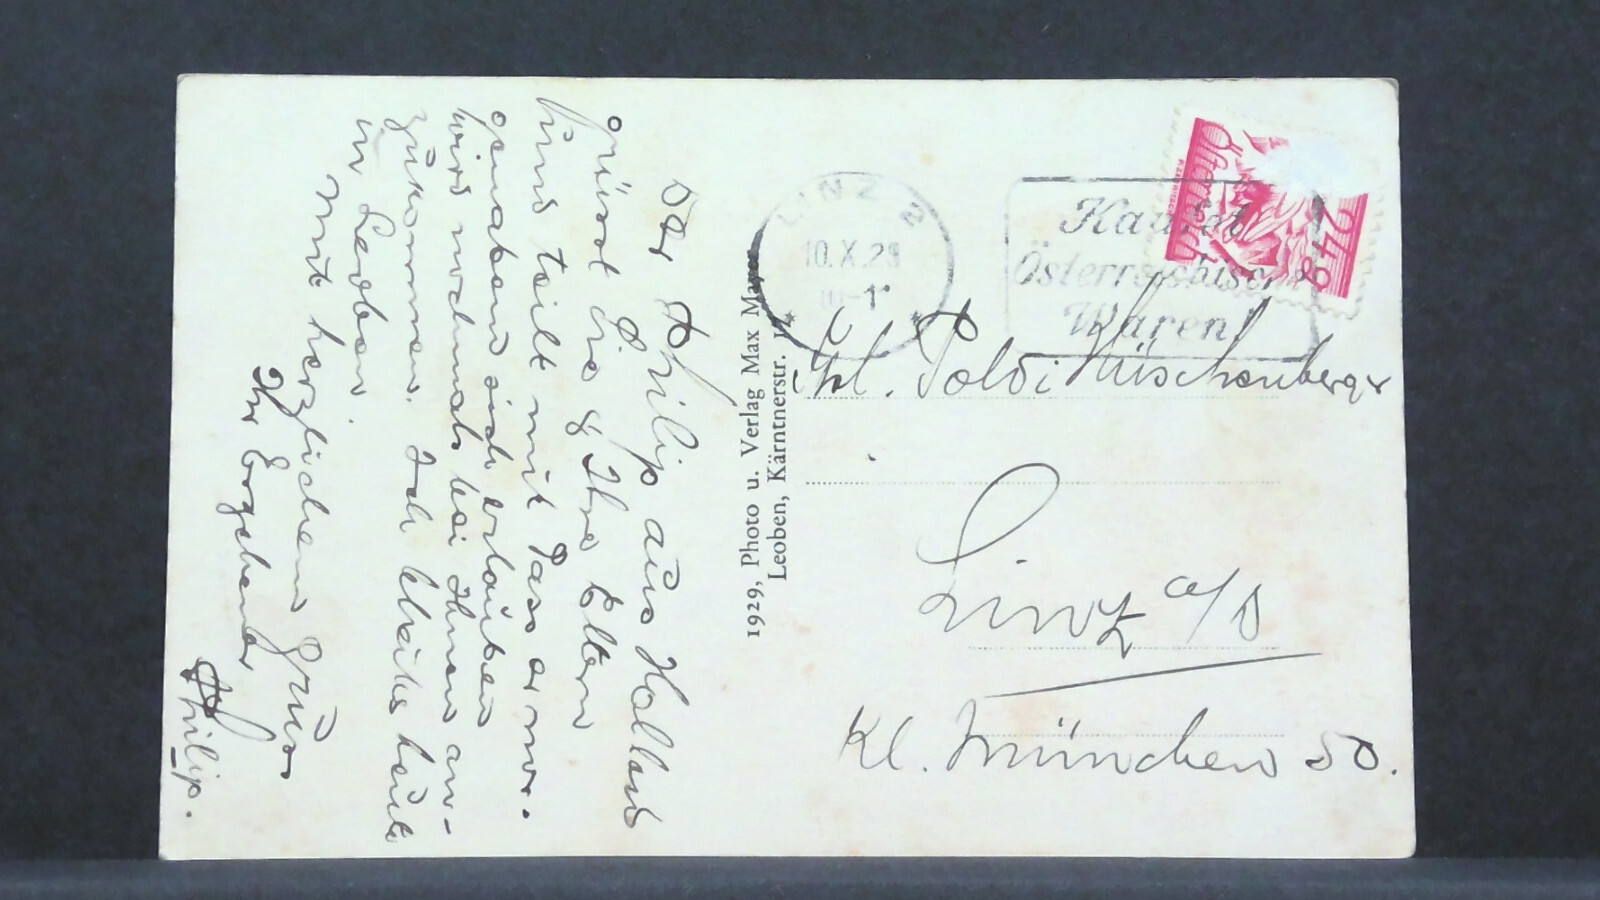 Der Philip aus Holland
grüsst Sie & Ihre Eltern
und teilt mit dass er mor-
gen abend sich erlauben
wird nochmals bei Ihnen an-
zukommen. Ich bleibe heute
in Leoben.
Mit herzlichem Gruss
Ihr Ergebener
Philip.
1929, Photo u. Verlag Max
Leoben, Kärntnerstr.
LINZ 2
10.X.29
Kaufet
Österreichische
Waren!
24 g
Frl. Poldi
Linz a/D
Kl. München 50.